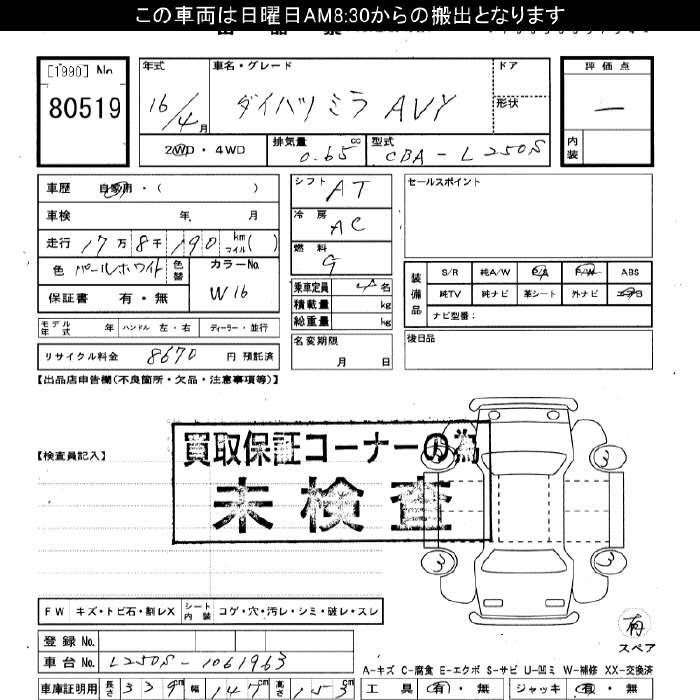 この車両は日曜日AM8:30からの搬出となります
[1990] No
80519
年式 車名・グレード ドア 評価点
16/4月 ダイハツミラ AVY 形状 —
2WD・4WD 排気量 0.65 cc 型式 CBA-L250S 内装
車歴 自家用・( )
車検 年 月
走行 17万8千190 km マイル( )
色 パールホワイト 色替 カラーNo. W16
保証書 有・無
モデル年式 年 ハンドル 左・右 ディーラー・並行
リサイクル料金 8670 円 預託済
シフト AT
冷房 AC
燃料 G
乗車定員 4名
積載量 kg
総重量 kg
名変期限 月 日
セールスポイント
装備品 S/R 純A/W P/S P/W ABS
純TV 純ナビ 革シート 外ナビ エアB
ナビ型番:
後日品
【出品店申告欄(不良箇所・欠品・注意事項等)】
【検査員記入】
買取保証コーナーの為
未検査
3 3
3 3
FW キズ・トビ石・割レX シート内装 コゲ・穴・汚レ・シミ・破レ・スレ
有
スペア
登録 No.
車台 No. L250S-1061963
A-キズ C-腐食 E-エクボ S-サビ U-凹ミ W-補修 XX-交換済
車庫証明用 長さ 339cm 幅 147cm 高さ 153cm
工具 有・無 ジャッキ 有・無